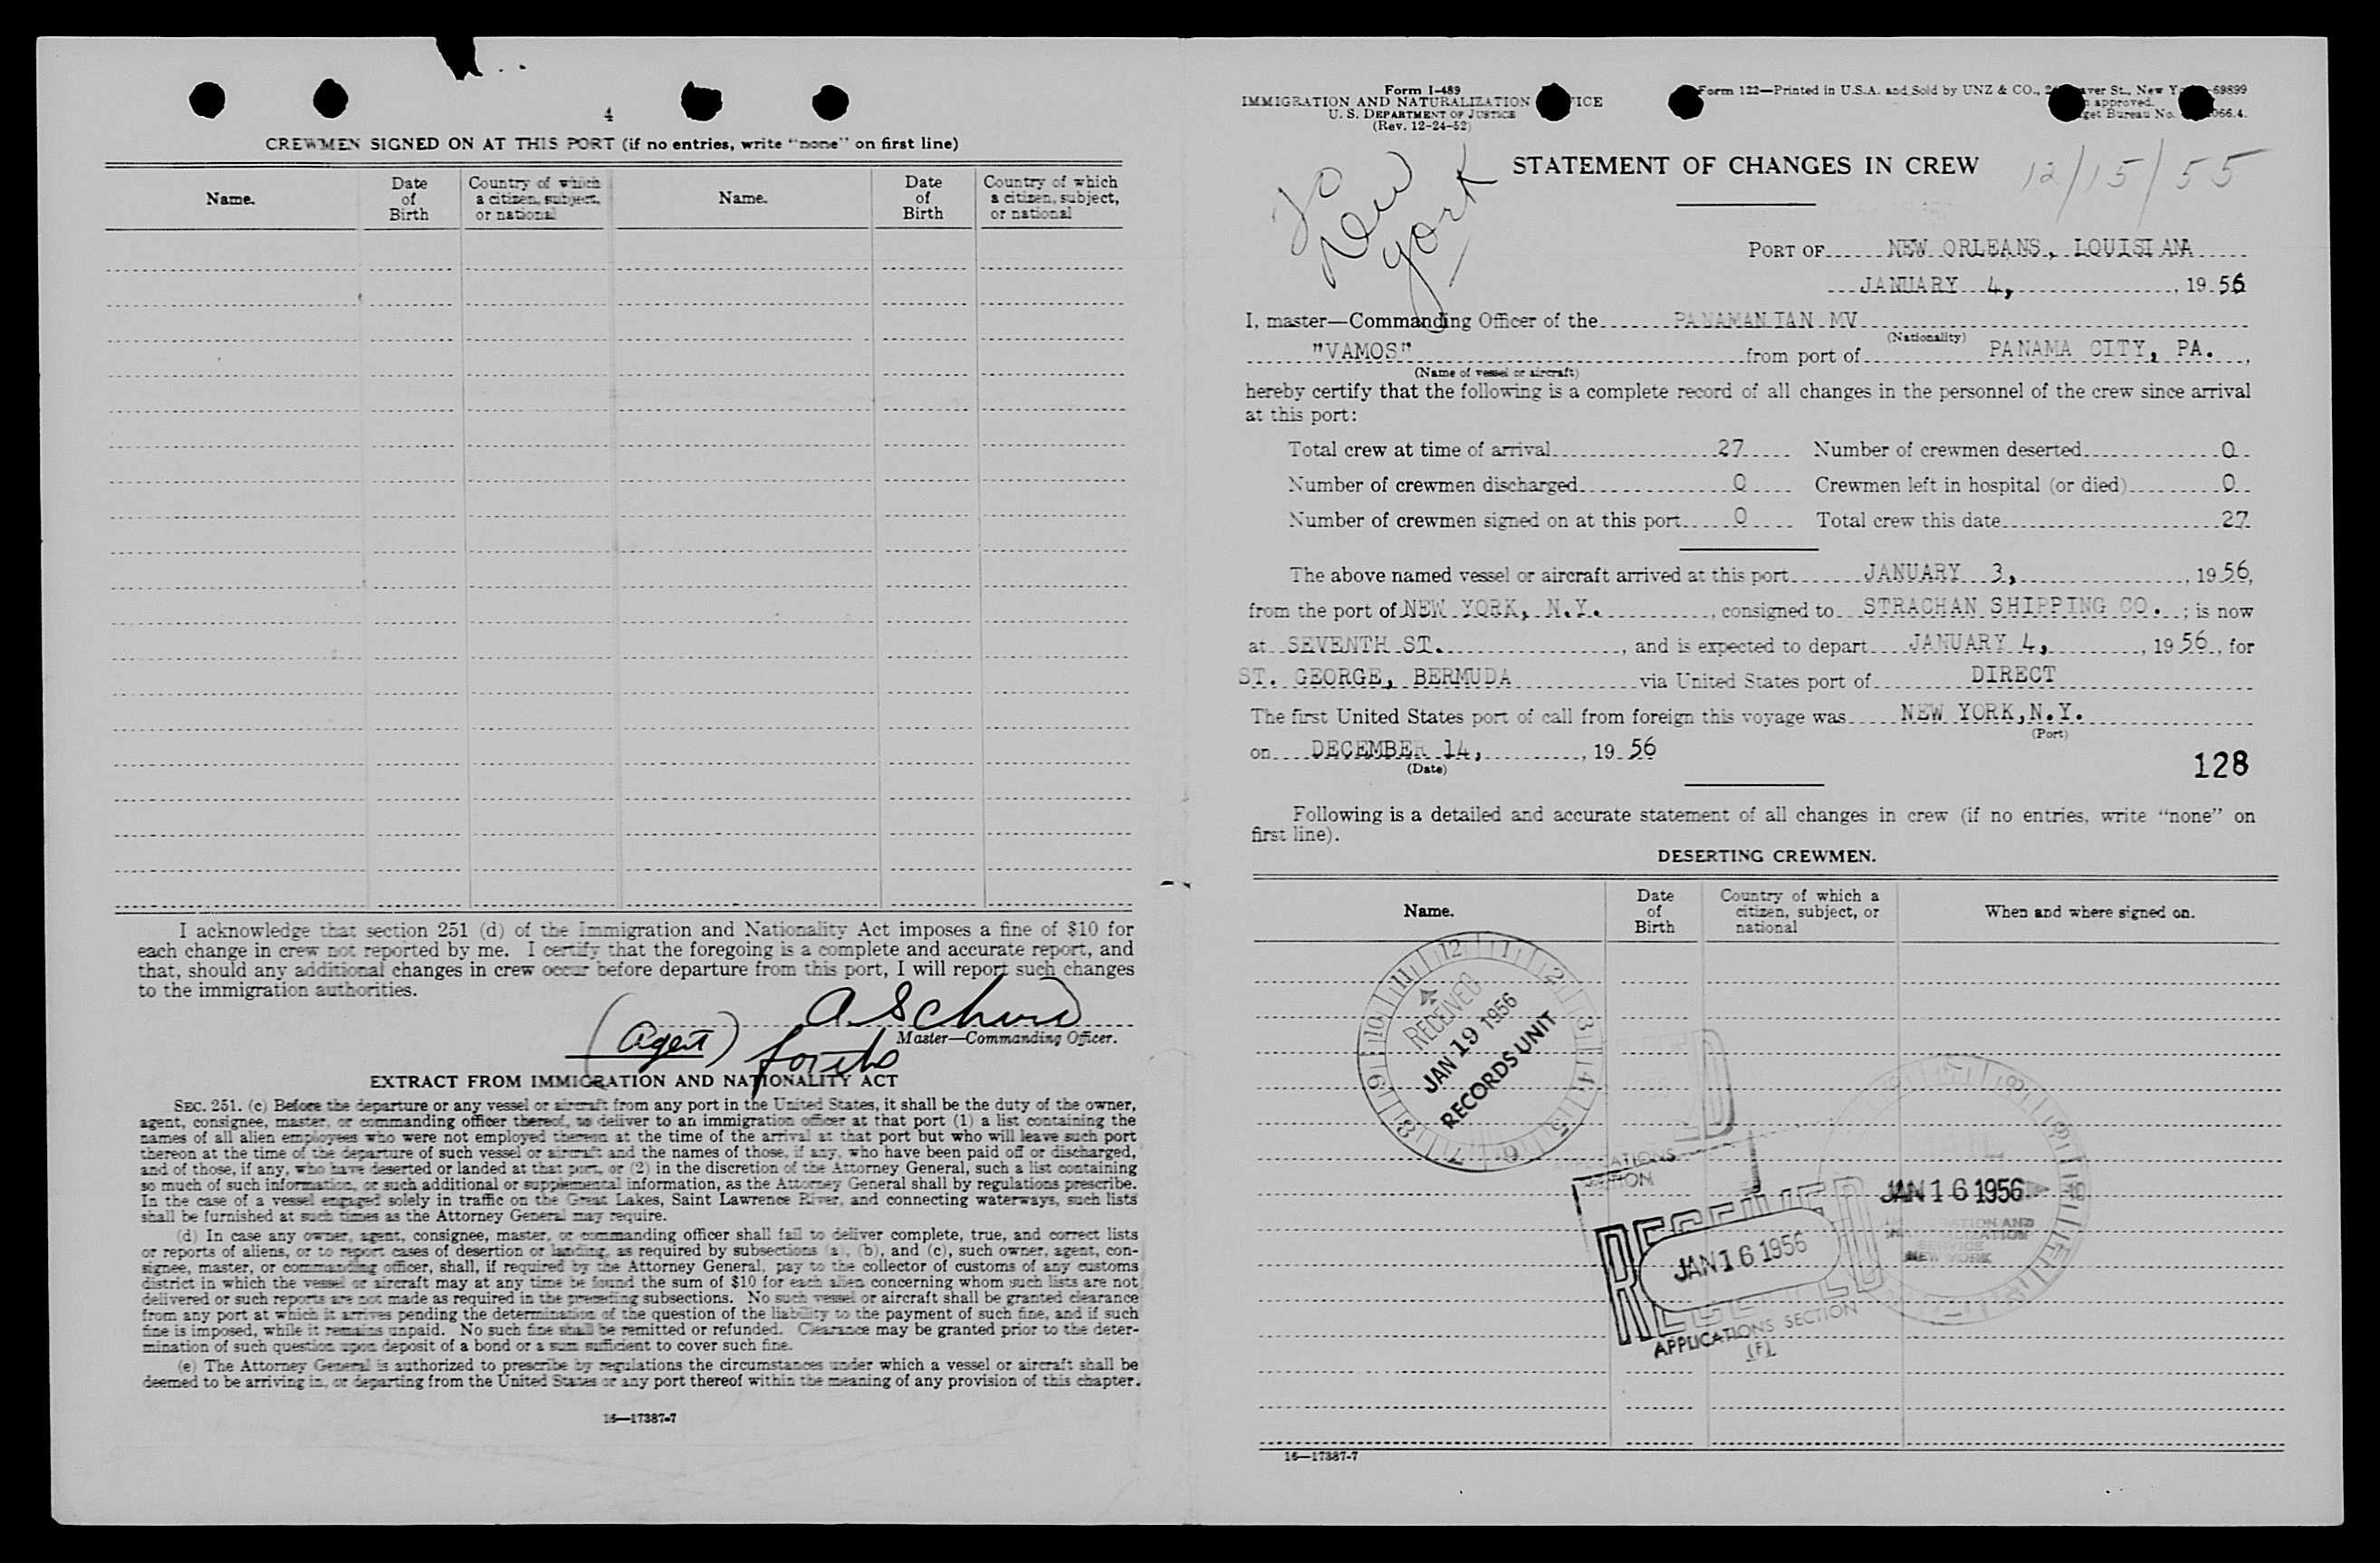 4
CREWMEN SIGNED ON AT THIS PORT (if no entries, write "none" on first line)
Name. Date of Birth Country of which a citizen, subject, or national Name. Date of Birth Country of which a citizen, subject, or national
I acknowledge that section 251 (d) of the Immigration and Nationality Act imposes a fine of $10 for
each change in crew not reported by me. I certify that the foregoing is a complete and accurate report, and
that, should any additional changes in crew occur before departure from this port, I will report such changes
to the immigration authorities.
(Agent)
Master—Commanding Officer.
EXTRACT FROM IMMIGRATION AND NATIONALITY ACT
SEC. 251. (c) Before the departure or any vessel or aircraft from any port in the United States, it shall be the duty of the owner,
agent, consignee, master, or commanding officer thereof, to deliver to an immigration officer at that port (1) a list containing the
names of all alien employees who were not employed thereon at the time of the arrival at that port but who will leave such port
thereon at the time of the departure of such vessel or aircraft and the names of those, if any, who have been paid off or discharged,
and of those, if any, who have deserted or landed at that port, or (2) in the discretion of the Attorney General, such a list containing
so much of such information, or such additional or supplemental information, as the Attorney General shall by regulations prescribe.
In the case of a vessel engaged solely in traffic on the Great Lakes, Saint Lawrence River, and connecting waterways, such lists
shall be furnished at such times as the Attorney General may require.
(d) In case any owner, agent, consignee, master, or commanding officer shall fail to deliver complete, true, and correct lists
or reports of aliens, or to report cases of desertion or landing, as required by subsections (a), (b), and (c), such owner, agent, con-
signee, master, or commanding officer, shall, if required by the Attorney General, pay to the collector of customs of any customs
district in which the vessel or aircraft may at any time be found the sum of $10 for each alien concerning whom such lists are not
delivered or such reports are not made as required in the preceding subsections. No such vessel or aircraft shall be granted clearance
from any port at which it arrives pending the determination of the question of the liability to the payment of such fine, and if such
fine is imposed, while it remains unpaid. No such fine shall be remitted or refunded. Clearance may be granted prior to the deter-
mination of such question upon deposit of a bond or a sum sufficient to cover such fine.
(e) The Attorney General is authorized to prescribe by regulations the circumstances under which a vessel or aircraft shall be
deemed to be arriving in, or departing from the United States or any port thereof within the meaning of any provision of this chapter.
16—17387-7
Form I-489
IMMIGRATION AND NATURALIZATION
U. S. DEPARTMENT OF JUSTICE
(Rev. 12-24-52)
Form 122—Printed in U.S.A. and Sold by UNZ & CO.,
approved.
to New York
STATEMENT OF CHANGES IN CREW
12/15/55
PORT OF NEW ORLEANS, LOUISIANA
JANUARY 4, 1956
I, master—Commanding Officer of the PANAMANIAN MV
(Nationality)
"VAMOS" from port of PANAMA CITY, PA.,
(Name of vessel or aircraft)
hereby certify that the following is a complete record of all changes in the personnel of the crew since arrival
at this port:
Total crew at time of arrival 27 Number of crewmen deserted 0
Number of crewmen discharged 0 Crewmen left in hospital (or died) 0
Number of crewmen signed on at this port 0 Total crew this date 27
The above named vessel or aircraft arrived at this port JANUARY 3, 1956,
from the port of NEW YORK, N.Y., consigned to STRACHAN SHIPPING CO.; is now
at SEVENTH ST., and is expected to depart JANUARY 4, 1956, for
ST. GEORGE, BERMUDA via United States port of DIRECT
The first United States port of call from foreign this voyage was NEW YORK, N.Y.
(Port)
on DECEMBER 14, 1956
(Date)
128
Following is a detailed and accurate statement of all changes in crew (if no entries, write "none" on
first line).
DESERTING CREWMEN.
Name. Date of Birth Country of which a citizen, subject, or national When and where signed on.
RECEIVED
JAN 19 1956
RECORDS UNIT
12 1 2 3 4 5 6 7 8 9 10 11
RECEIVED
JAN 16 1956
APPLICATIONS SECTION
(F)
JAN 16 1956
NEW YORK
16—17387-7